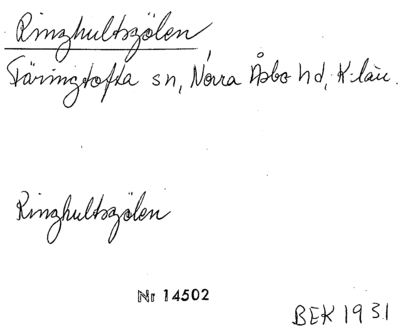 Ringhultsgölen
Färingtofta sn, Norra Åsbo hd, K-län.
Ringhultsgölen
Nr 14502
BEK 1931